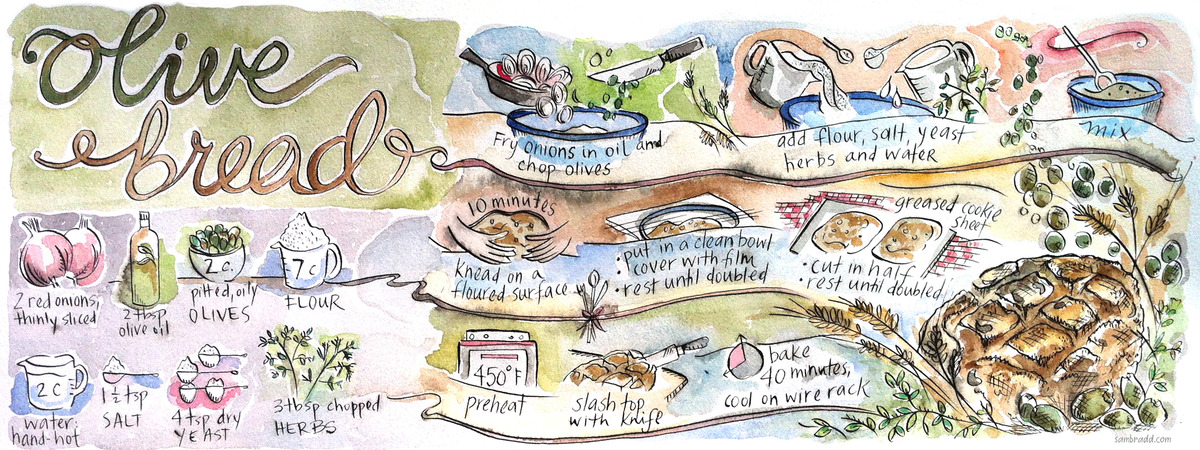 olive
bread
2 red onions,
thinly sliced
2 tbsp
olive oil
2 c.
pitted, oily
OLIVES
7 c
FLOUR
2 C
water:
hand-hot
1 1/2 tsp
SALT
4 tsp dry
YEAST
3 tbsp chopped
HERBS
Fry onions in oil and
chop olives
add flour, salt, yeast
herbs and water
mix
10 minutes
knead on a
floured surface
• put in a clean bowl
cover with film
• rest until doubled
greased cookie
sheet
• cut in half
• rest until doubled
450°F
preheat
slash top
with knife
bake
40 minutes,
cool on wire rack
sambradd.com